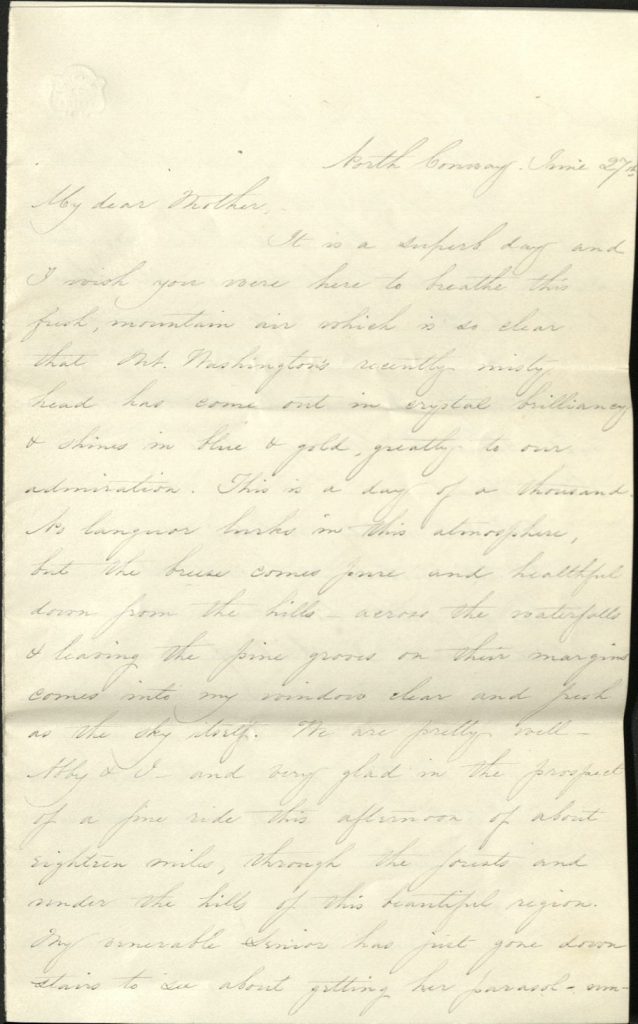 North Conway. June 27th
My dear Mother,
It is a superb day and
I wish you were here to breathe this
fresh, mountain air which is so clear
that Mt. Washington's recently misty
head has come out in crystal brilliancy
& shines in blue & gold, greatly to our
admiration. This is a day of a thousand
No languor lurks in this atmosphere,
but the breeze comes pure and healthful
down from the hills - across the waterfalls
& leaving the pine groves on their margins
comes into my window clear and fresh
as the sky itself. We are pretty well -
Abby & I - and very glad in the prospect
of a fine ride this afternoon of about
eighteen miles, through the forests and
under the hills of this beautiful region.
My venerable Senior has just gone down
stairs to see about getting her parasol - sun-